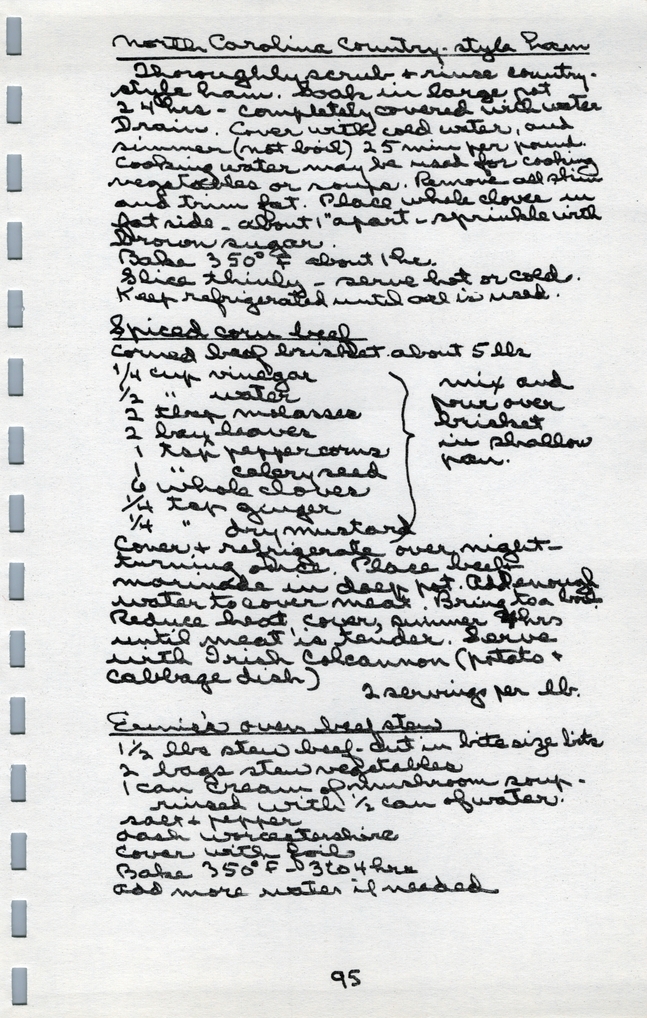 North Carolina Country-style Ham
Thoroughly scrub + rinse country-
style ham. Soak in large pot
24 hrs - completely covered with water
Drain. Cover with cold water, and
simmer (not boil) 25 min per pound.
Cooking water may be used for cooking
vegetables or soups. Remove all skin
and trim fat. Place whole cloves in
fat side - about 1" apart - sprinkle with
brown sugar.
Bake 350° F about 1 hr.
Slice thinly - serve hot or cold.
Keep refrigerated until all is used.
Spiced corn beef
Corned beef brisket about 5 lbs
1/4 cup vinegar
1/2 " water
2 tbsp molasses
2 bay leaves
1 tsp peppercorns
1 " celery seed
6 whole cloves
1/4 tsp ginger
1/4 " dry mustard
mix and
pour over
brisket
in shallow
pan.
Cover + refrigerate over night -
turning once. Place beef
marinade in deep pot. Add enough
water to cover meat. Bring to a boil.
Reduce heat, cover, simmer 4 hrs
until meat is tender. Serve
with Irish Colcannon (potato +
cabbage dish)
2 servings per lb.
Ernie's oven beef stew
1 1/2 lbs stew beef - cut in bite size bits
2 bags stew vegetables
1 can Cream of mushroom soup -
rinsed with 1/2 can of water.
salt + pepper
dash worcestershire
cover with foil
Bake 350° F - 3 to 4 hrs
add more water if needed
95